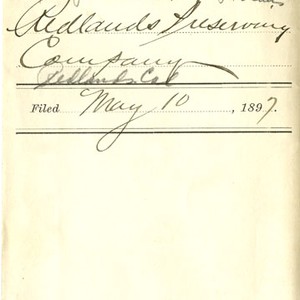 Redlands Preserving
Company
Redlands, Cal
Filed May 10, 1897.